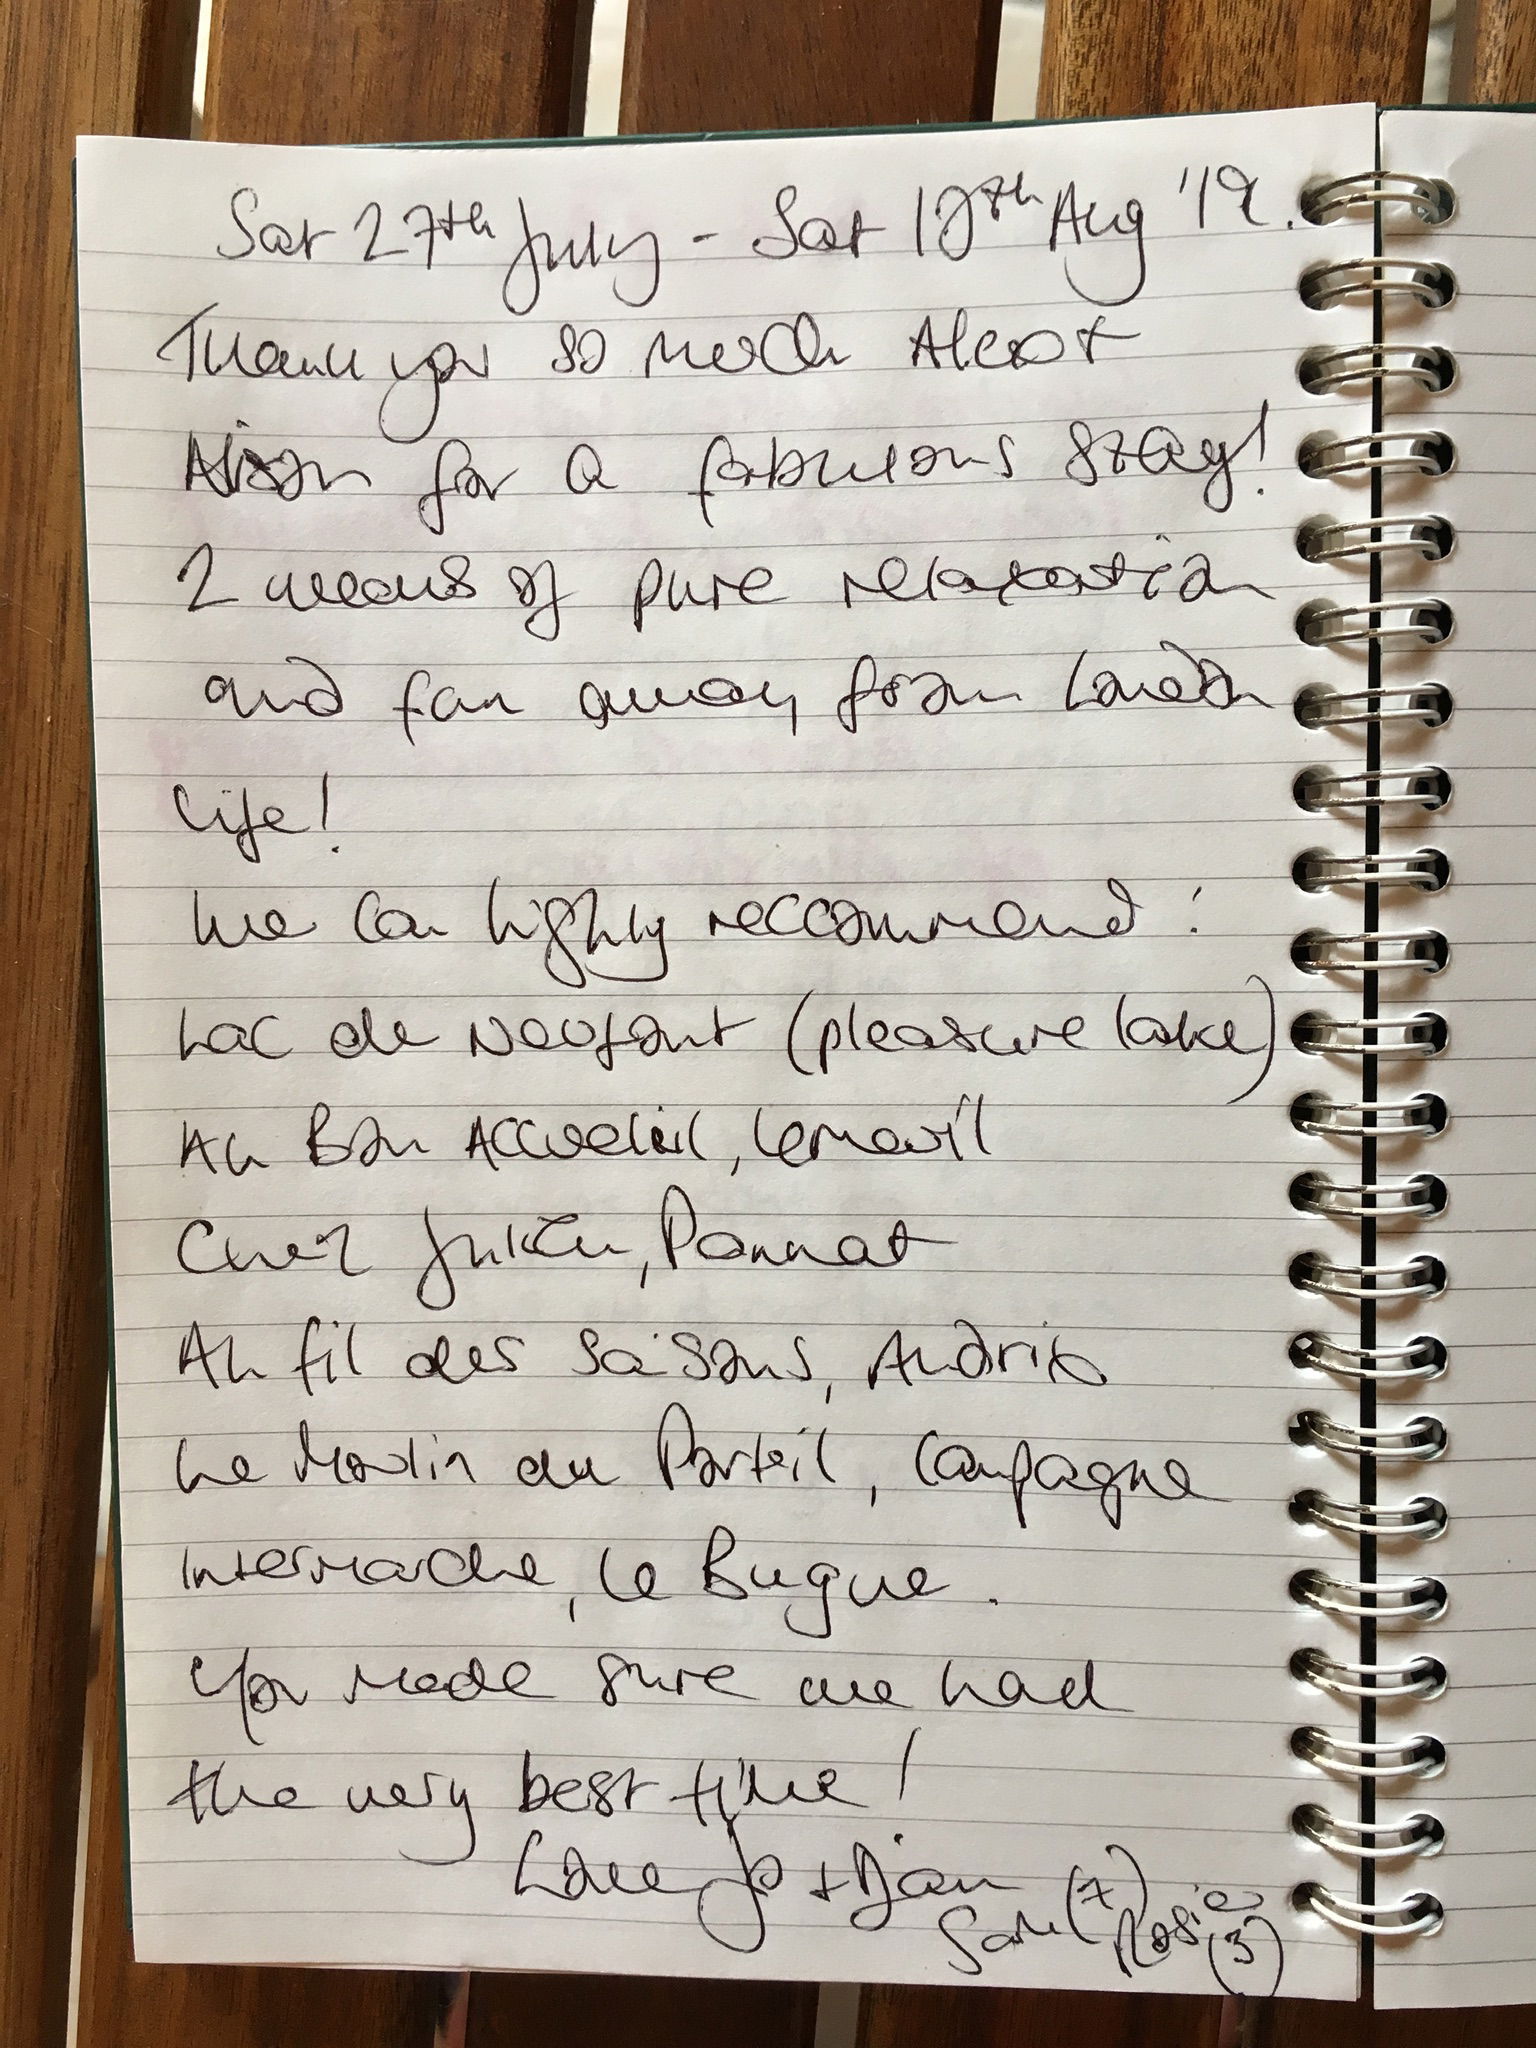 Sat 27th July - Sat 10th Aug '19.
Thank you so much Alex +
Alison for a fabulous stay!
2 weeks of pure relaxation
and far away from London
life!
We can highly reccommend :
Lac de Neufont (pleasure lake)
Au Bon Accueil, Limeuil
Chez Julien, Paunat
Au fil des Saisons, Audrix
Le Moulin du Porteil, Campagne
Intermarche, Le Bugue.
You made sure we had
the very best time!
Love Jo +
Sam (7) Rosie
(3)